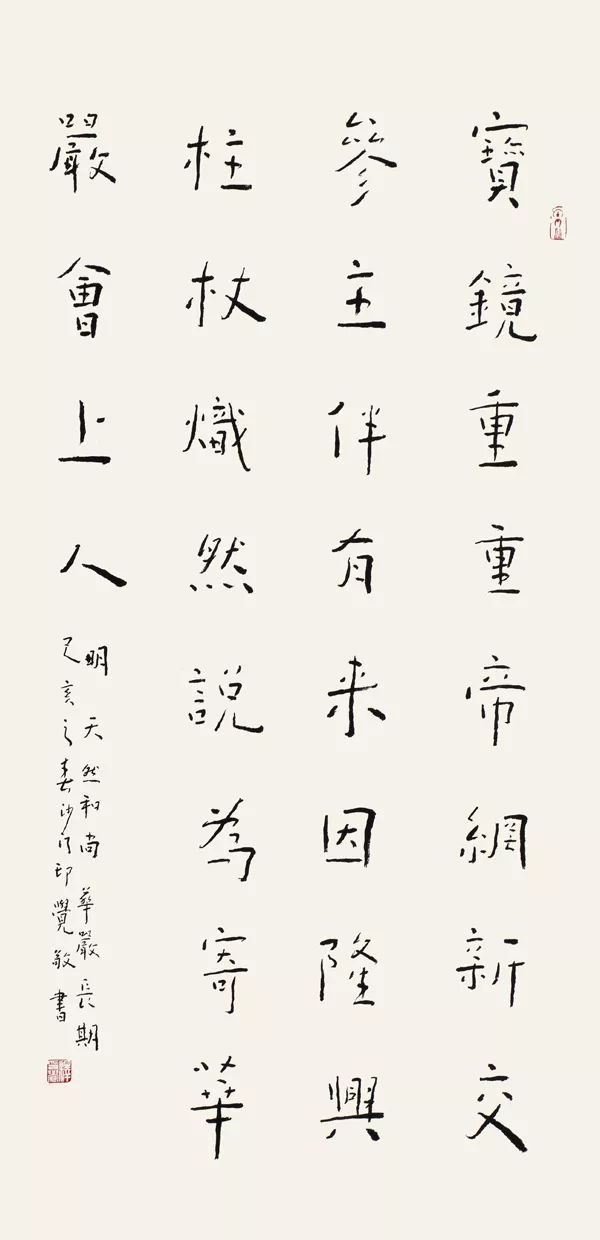 寶鏡重重帝網新交
參主伴有來因隆興
柱杖熾然說為寄華
嚴會上人
明天然和尚華嚴長期
己亥之春沙門印覺敏書